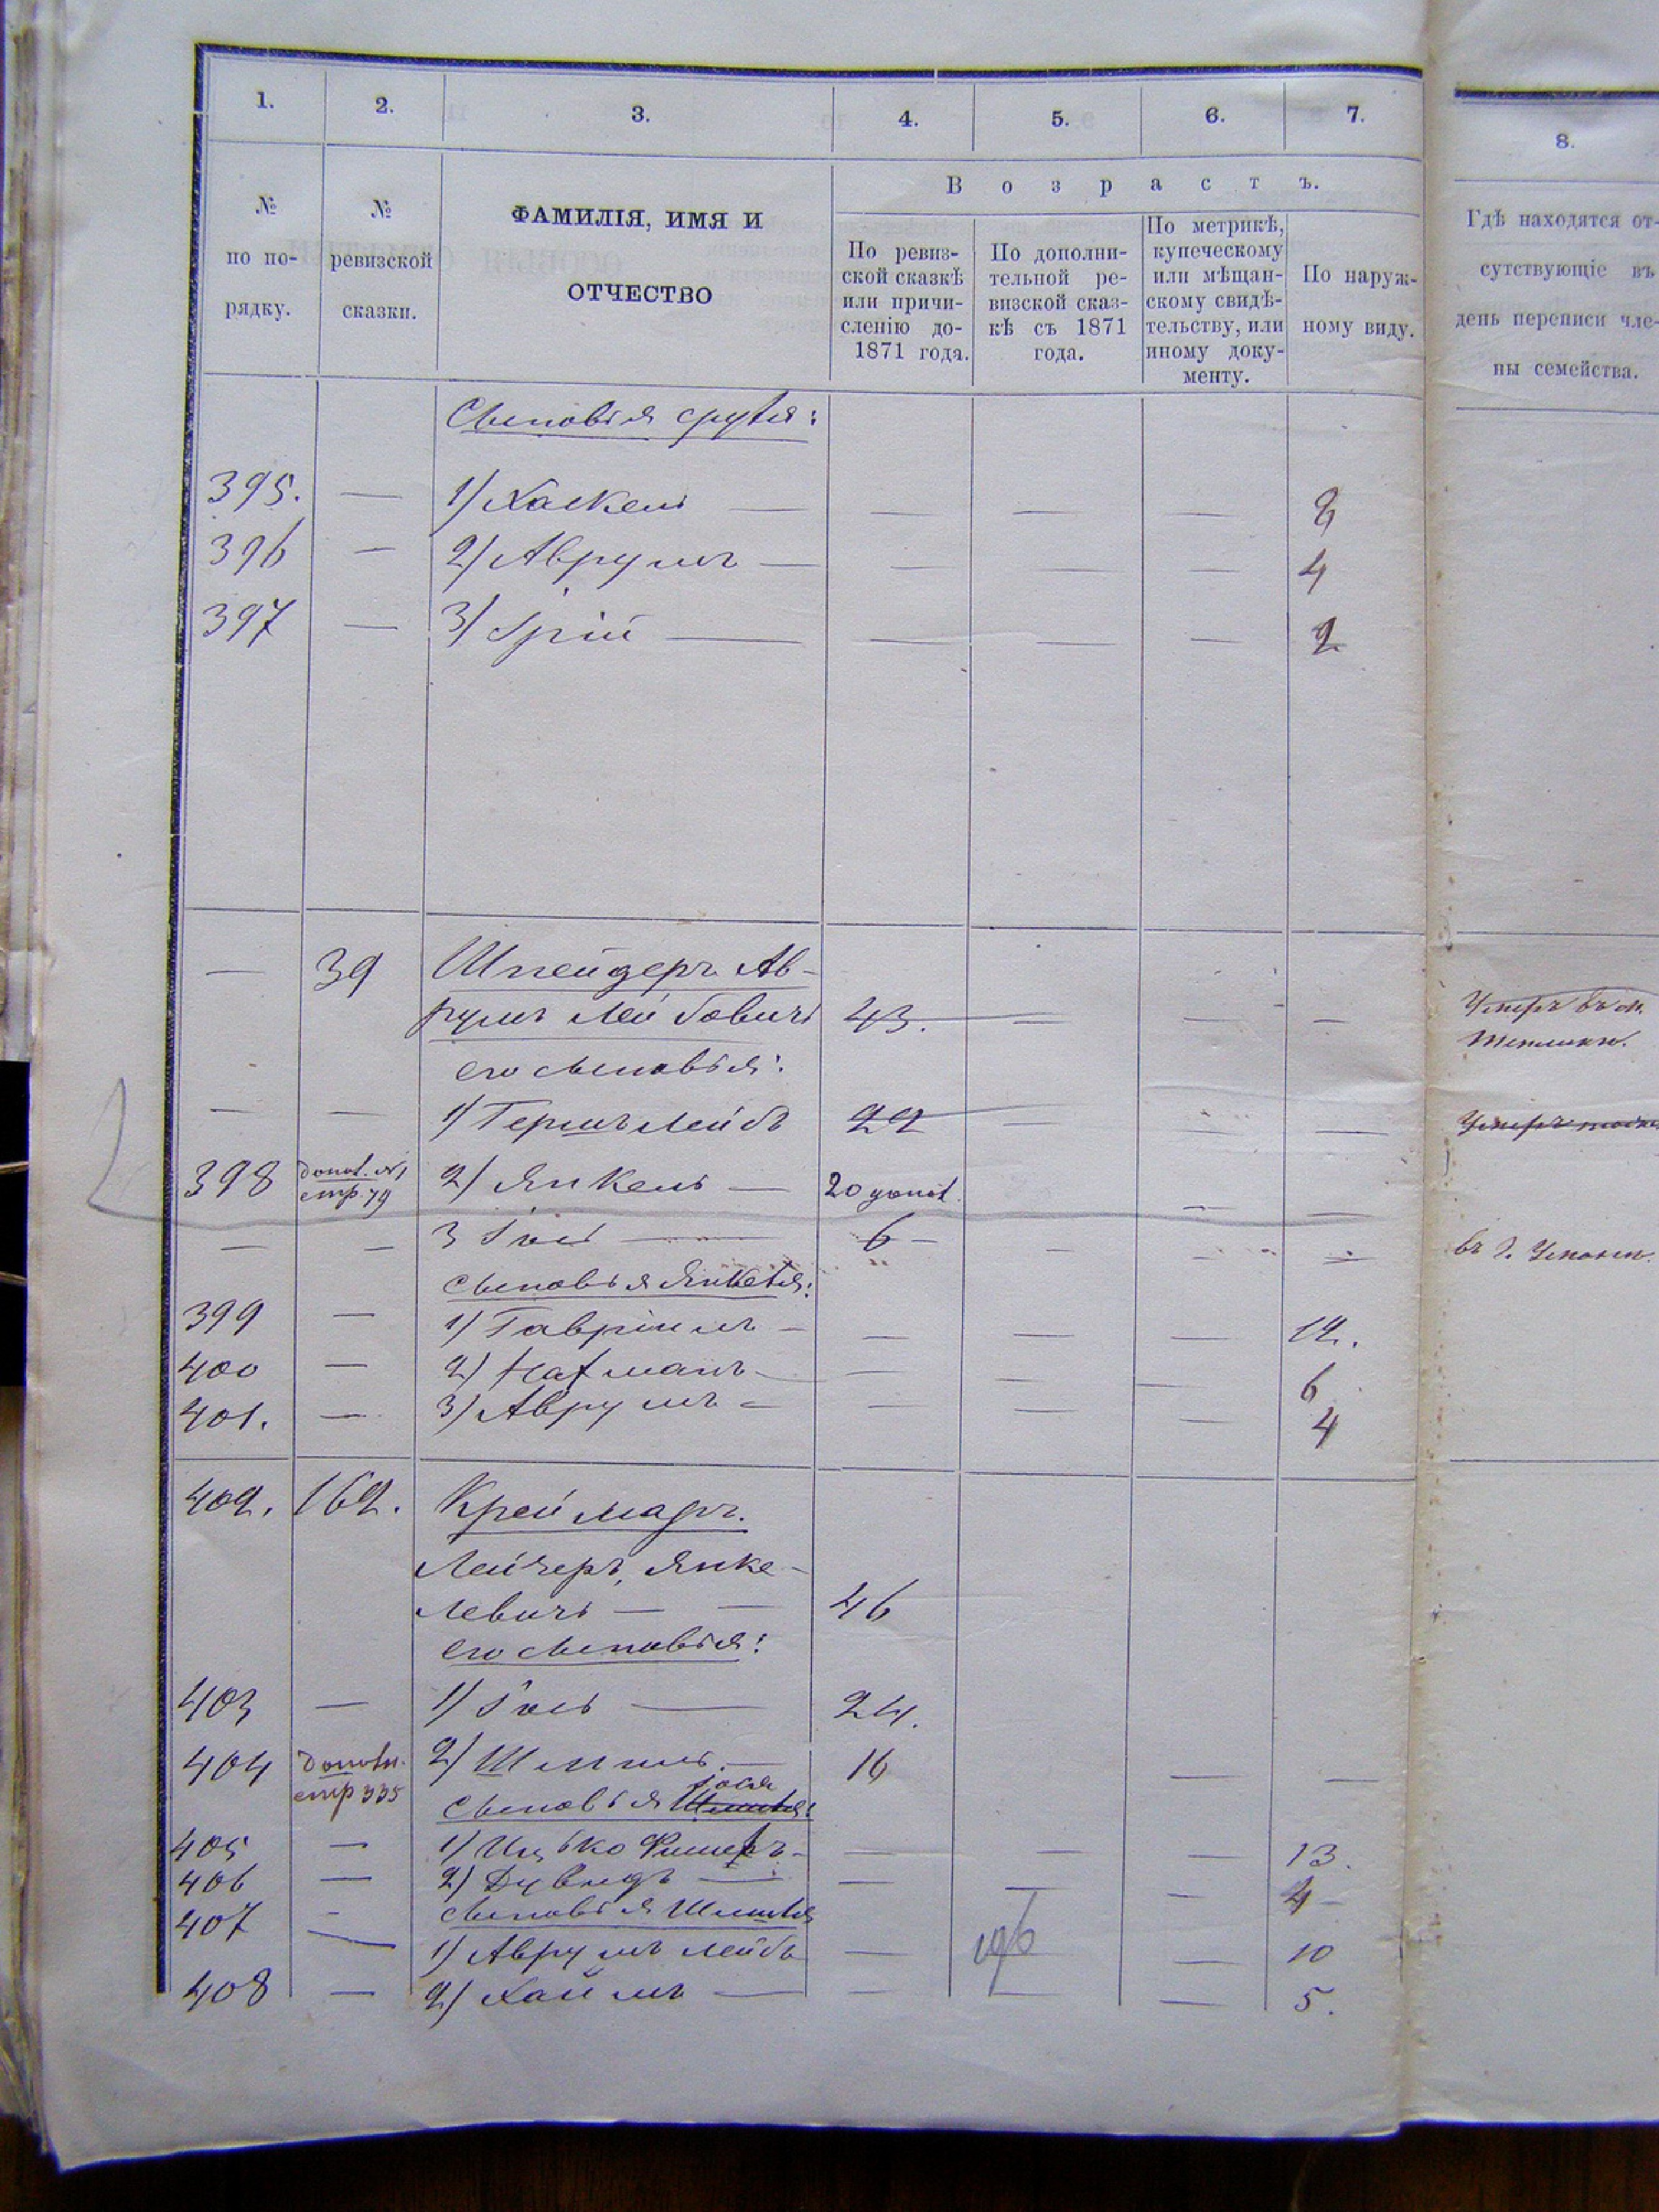 1. 2. 3. 4. 5. 6. 7. 8.
№ по по-рядку.
№ ревизской сказки.
ФАМИЛІЯ, ИМЯ И
ОТЧЕСТВО
Возрастъ.
По ревиз-
ской сказкѣ
или причи-
сленію до-
1871 года.
По дополни-
тельной ре-
визской сказ-
кѣ съ 1871
года.
По метрикѣ,
купеческому
или мѣщан-
скому свидѣ-
тельству, или
иному доку-
менту.
По наруж-
ному виду.
Гдѣ находятся от-
сутствующіе въ
день переписи чле-
ны семейства.
Сыновья
395. — 1) Хаскель — — — — 8
396 — 2) Аврумъ — — — — 4
397 — 3) — — — — 2
— 39 Шнейдеръ Ав-
румъ Лейбовичъ 43. — — — Умеръ въ м.
его сыновья:
— — 1) Гершъ Лейбъ 22 — — — Умеръ
398 допол. №1 стр. 79 2) Янкель — 20 допол. — —
— — 3 Іось — 6 — — — — въ г. Умани.
сыновья Янкеля:
399 — 1) Гавріилъ — — — — 12.
400 — 2) Нахманъ — — — — 6
401. — 3) Аврумъ — — — — 4
402. 162. Креймаръ.
Лейзеръ, Янке-
левичъ — — 46
его сыновья:
403 — 1) Іось — 24.
404 дополн. стр 335 2) Шмиль — 16 — —
Іося
сыновья Шмиля:
405 — 1) Ицько Фишель — — — — 13.
406 — 2) Дувидъ — — — — 4 —
сыновья Шмиля
407 — 1) Аврумъ Лейбъ — 196 — 10
408 — 2) Хаимъ — — — — 5.